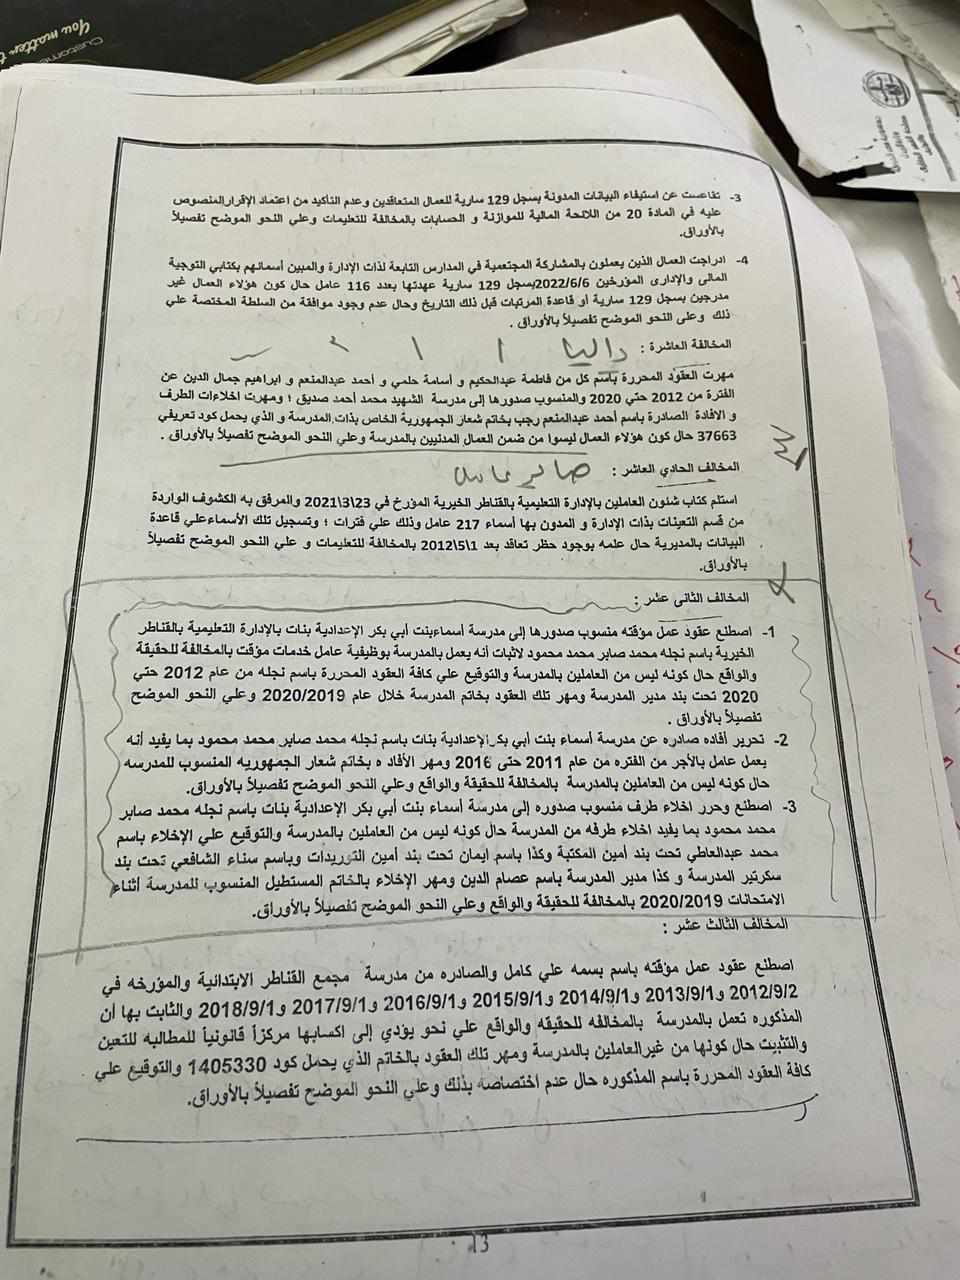 You matter t
Custome
3- تقاعست عن استيفاء البيانات المدونة بسجل 129 سارية للعمال المتعاقدين وعدم التأكيد من اعتماد الإقرارالمنصوص
عليه في المادة 20 من اللائحة المالية للموازنة و الحسابات بالمخالفة للتعليمات وعلي النحو الموضح تفصيلاً
بالأوراق.
4- ادراجت العمال الذين يعملون بالمشاركة المجتمعية في المدارس التابعة لذات الإدارة والمبين أسمائهم بكتابي التوجية
المالى والإدارى المؤرخين 2022/6/6بسجل 129 سارية عهدتها بعدد 116 عامل حال كون هؤلاء العمال غير
مدرجين بسجل 129 سارية أو قاعدة المرتبات قبل ذلك التاريخ وحال عدم وجود موافقة من السلطة المختصة علي
ذلك وعلى النحو الموضح تفصيلاً بالأوراق .
المخالفة العاشرة : داليا
مهرت العقود المحررة بأسم كل من فاطمة عبدالحكيم و أسامة حلمي و أحمد عبدالمنعم و ابراهيم جمال الدين عن
الفترة من 2012 حتي 2020 والمنسوب صدورها إلى مدرسة الشهيد محمد أحمد صديق ؛ ومهرت اخلاءات الطرف
و الافادة الصادرة باسم أحمد عبدالمنعم رجب بخاتم شعار الجمهورية الخاص بذات المدرسة و الذي يحمل كود تعريفي
37663 حال كون هؤلاء العمال ليسوا من ضمن العمال المدنيين بالمدرسة وعلي النحو الموضح تفصيلاً بالأوراق .
المخالف الحادي العاشر : صابر
استلم كتاب شئون العاملين بالإدارة التعليمية بالقناطر الخيرية المؤرخ في 23\3\2021 والمرفق به الكشوف الواردة
من قسم التعينات بذات الإدارة و المدون بها أسماء 217 عامل وذلك علي فترات ؛ وتسجيل تلك الأسماءعلي قاعدة
البيانات بالمديرية حال علمه بوجود حظر تعاقد بعد 1\5\2012 بالمخالفة للتعليمات و علي النحو الموضح تفصيلاً
بالأوراق.
المخالف الثانى عشر :
1- اصطنع عقود عمل مؤقته منسوب صدورها إلى مدرسة أسماءبنت أبي بكر الإعدادية بنات بالإدارة التعليمية بالقناطر
الخيرية باسم نجله محمد صابر محمد محمود لاثبات أنه يعمل بالمدرسة بوظيفية عامل خدمات مؤقت بالمخالفة للحقيقة
والواقع حال كونه ليس من العاملين بالمدرسة والتوقيع علي كافة العقود المحررة باسم نجله من عام 2012 حتي
2020 تحت بند مدير المدرسة ومهر تلك العقود بخاتم المدرسة خلال عام 2020/2019 وعلي النحو الموضح
تفصيلاً بالأوراق .
2- تحرير أفاده صادره عن مدرسة أسماء بنت أبي بكر الإعدادية بنات باسم نجله محمد صابر محمد محمود بما يفيد أنه
يعمل عامل بالأجر من الفتره من عام 2011 حتى 2016 ومهر الأفاد ه بخاتم شعار الجمهوريه المنسوب للمدرسه
حال كونه ليس من العاملين بالمدرسة بالمخالفة للحقيقة والواقع وعلي النحو الموضح تفصيلاً بالأوراق.
3- اصطنع وحرر اخلاء طرف منسوب صدوره إلى مدرسة أسماء بنت أبي بكر الإعدادية بنات باسم نجله محمد صابر
محمد محمود بما يفيد اخلاء طرفه من المدرسة حال كونه ليس من العاملين بالمدرسة والتوقيع علي الإخلاء باسم
محمد عبدالعاطي تحت بند أمين المكتبة وكذا باسم ايمان تحت بند أمين التوريدات وباسم سناء الشافعي تحت بند
سكرتير المدرسة و كذا مدير المدرسة باسم عصام الدين ومهر الإخلاء بالخاتم المستطيل المنسوب للمدرسة أثناء
الامتحانات 2020/2019 بالمخالفة للحقيقة والواقع وعلي النحو الموضح تفصيلاً بالأوراق.
المخالف الثالث عشر :
اصطنع عقود عمل مؤقته باسم بسمه علي كامل والصادره من مدرسة مجمع القناطر الابتدائية والمؤرخه في
2012/9/2 و2013/9/1 و2014/9/1 و2015/9/1 و2016/9/1 و2017/9/1 و2018/9/1 والثابت بها أن
المذكوره تعمل بالمدرسة بالمخالفه للحقيقه والواقع علي نحو يؤدي إلى اكسابها مركزاً قانونياً للمطالبه للتعين
والتثبيت حال كونها من غيرالعاملين بالمدرسة ومهر تلك العقود بالخاتم الذي يحمل كود 1405330 والتوقيع علي
كافة العقود المحررة باسم المذكوره حال عدم اختصاصه بذلك وعلي النحو الموضح تفصيلاً بالأوراق.
13